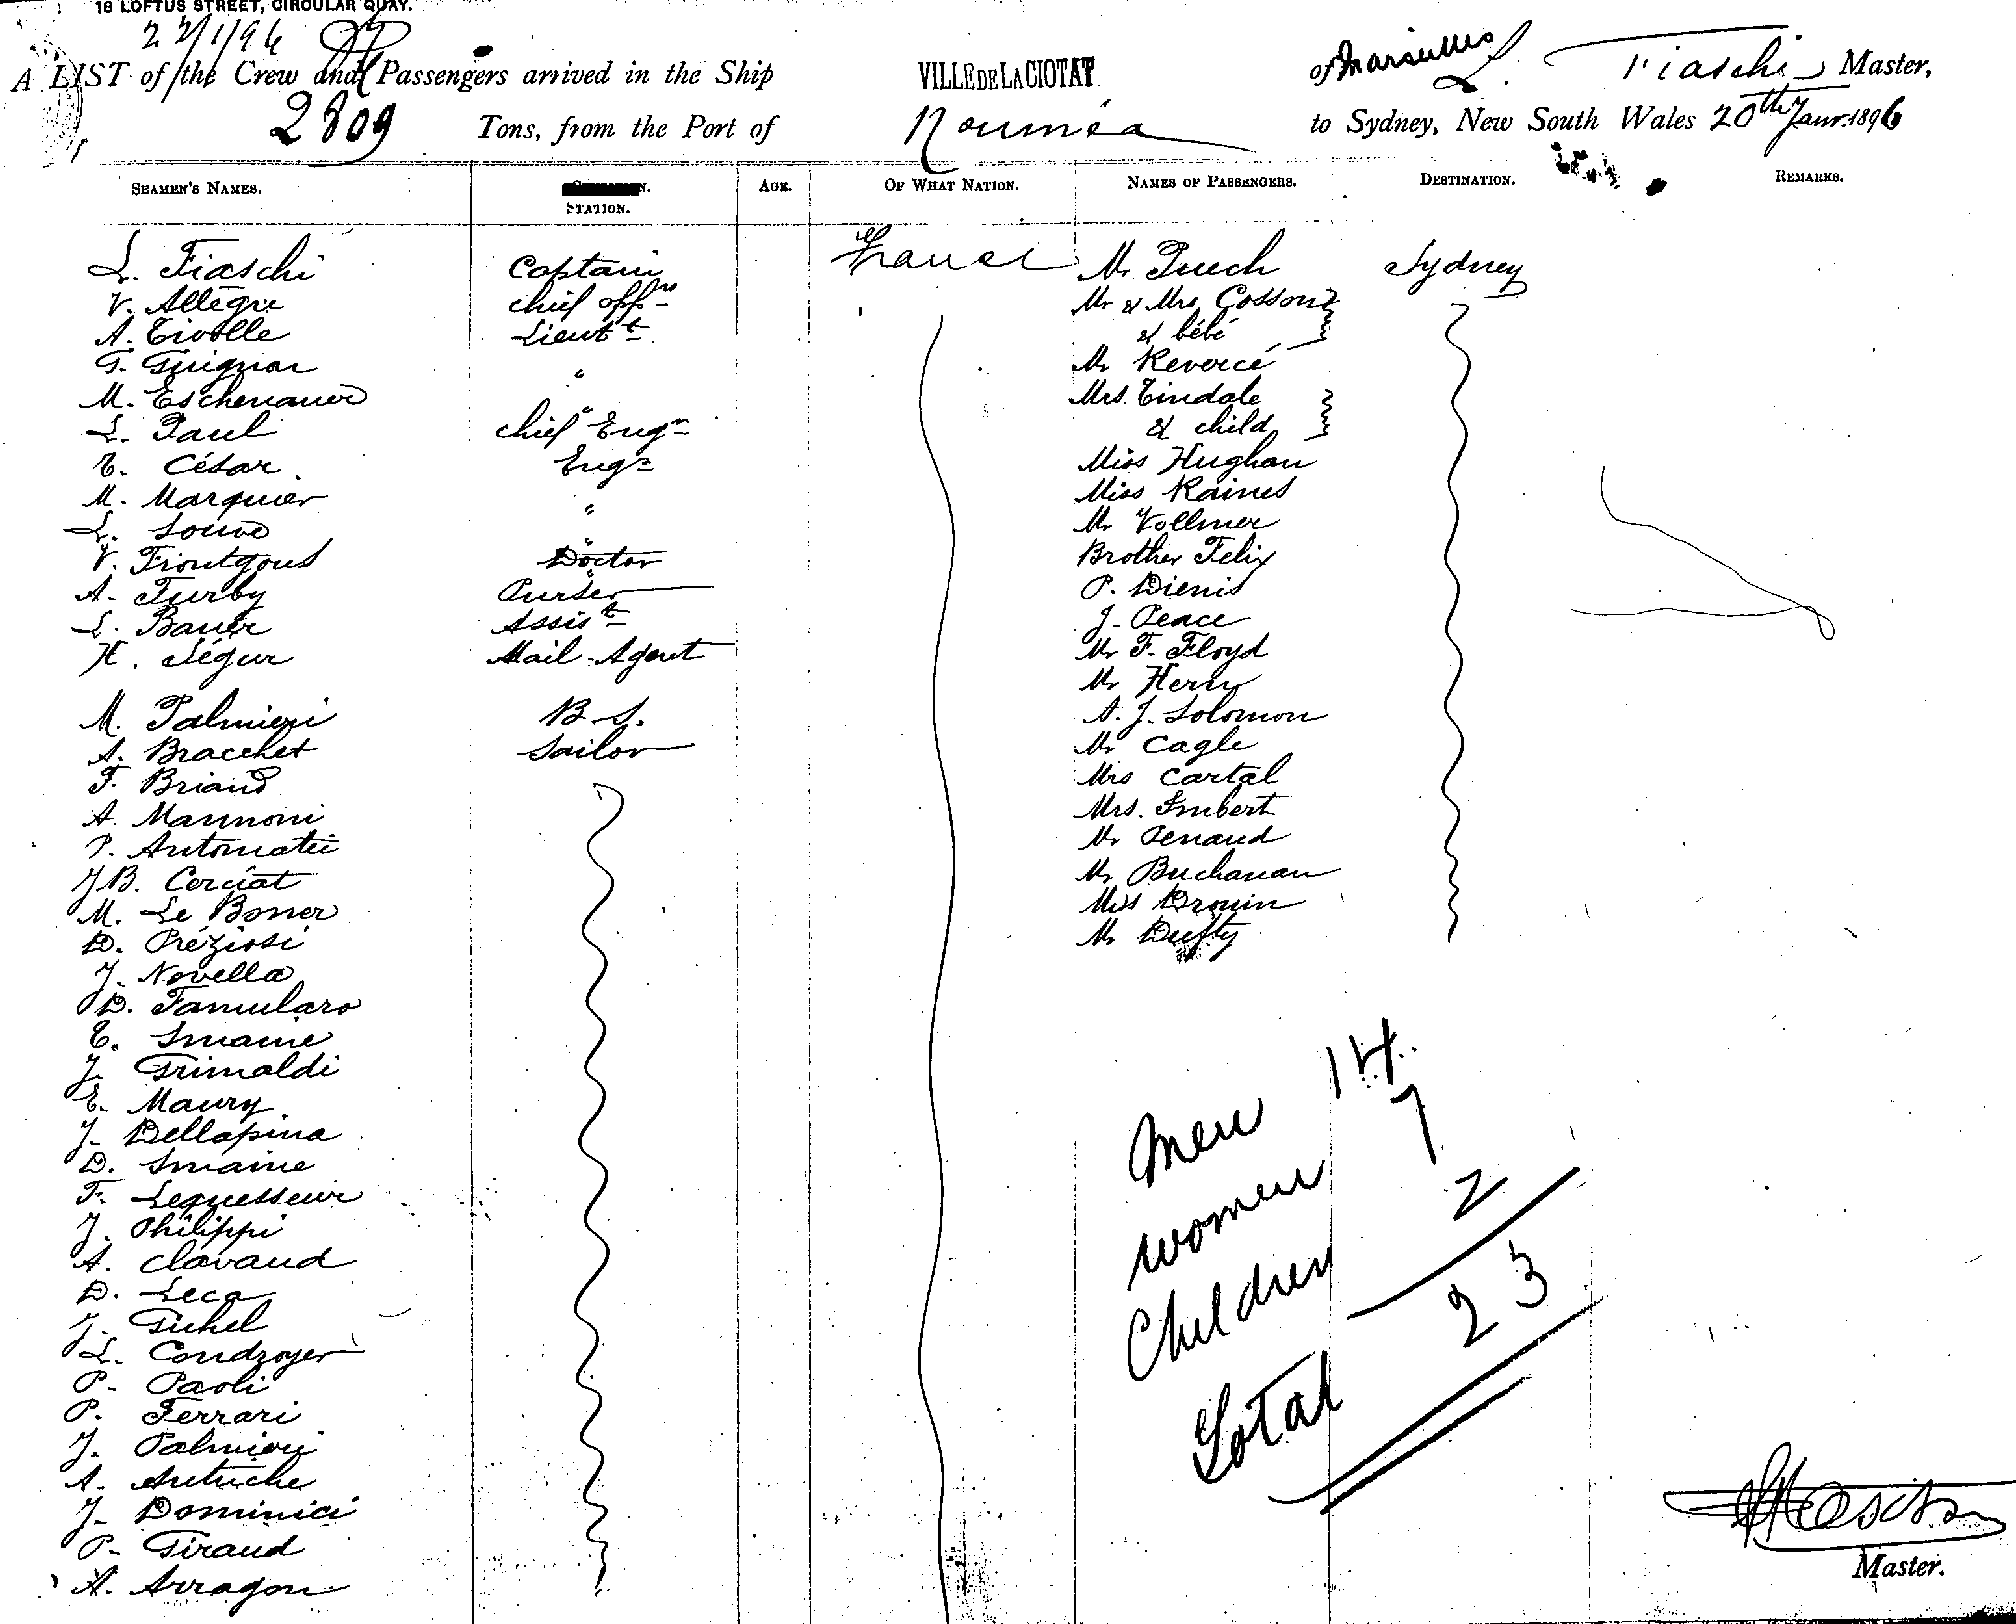 18 LOFTUS STREET, CIRCULAR QUAY.
22/1/96
A LIST of the Crew and Passengers arrived in the Ship VILLE DE LA CIOTAT of Marseilles L. Fiaschi Master,
2809 Tons, from the Port of Nouméa to Sydney, New South Wales 20th Janr. 1896
SEAMEN'S NAMES. STATION. AGE. OF WHAT NATION. NAMES OF PASSENGERS. DESTINATION. REMARKS.
L. Fiaschi Captain France Mr Puech Sydney
V. Allègre chief offr Mr & Mrs Cosson
A. Tivolle Lieutt & bébé
G. Guignon " Mr Revercé
M. Eschenauer " Mrs. Tindale
L. Paul chief Engr & child
E. César Engr Miss Hughan
M. Marquier " Miss Raines
L. Souve " Mr Vollmer
V. Frontgous Doctor Brother Felix
A. Turby Purser P. Dienis
L. Bauer Assist J. Peace
H. Ségur Mail-Agent Mr F. Floyd
Mr Henry
M. Palmieri B.S. A. J. Solomon
A. Bracchet Sailor Mr Cagle
F. Briand Mrs Cartal
A. Mannoni Mrs. Imbert
P. Automatei Mr Penaud
J.B. Cerciat Mr Buchanan
M. Le Boner Miss Drouin
D. Préziosi Mr Dufty
J. Novella
D. Famularo
E. Smaine
J. Grimaldi
E. Maury
J. Dellapina
D. Smaine
F. Lequesseur
J. Philippi
A. Clavaud
D. Leca
J. Guhel
L. Condroyer
P. Paoli
P. Ferrari
J. Palmieri
A. Antuche
J. Dominici
P. Giraud
A. Arragon
Men 14
women 7
Children 2
Total 23
Master.